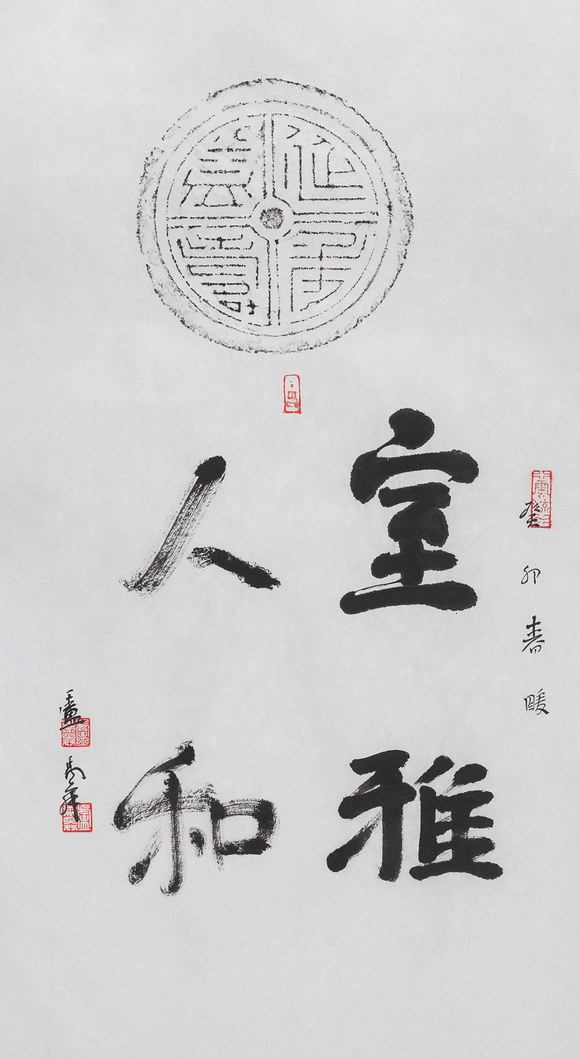 延年
益壽
癸卯春暖
室雅
人和
盧